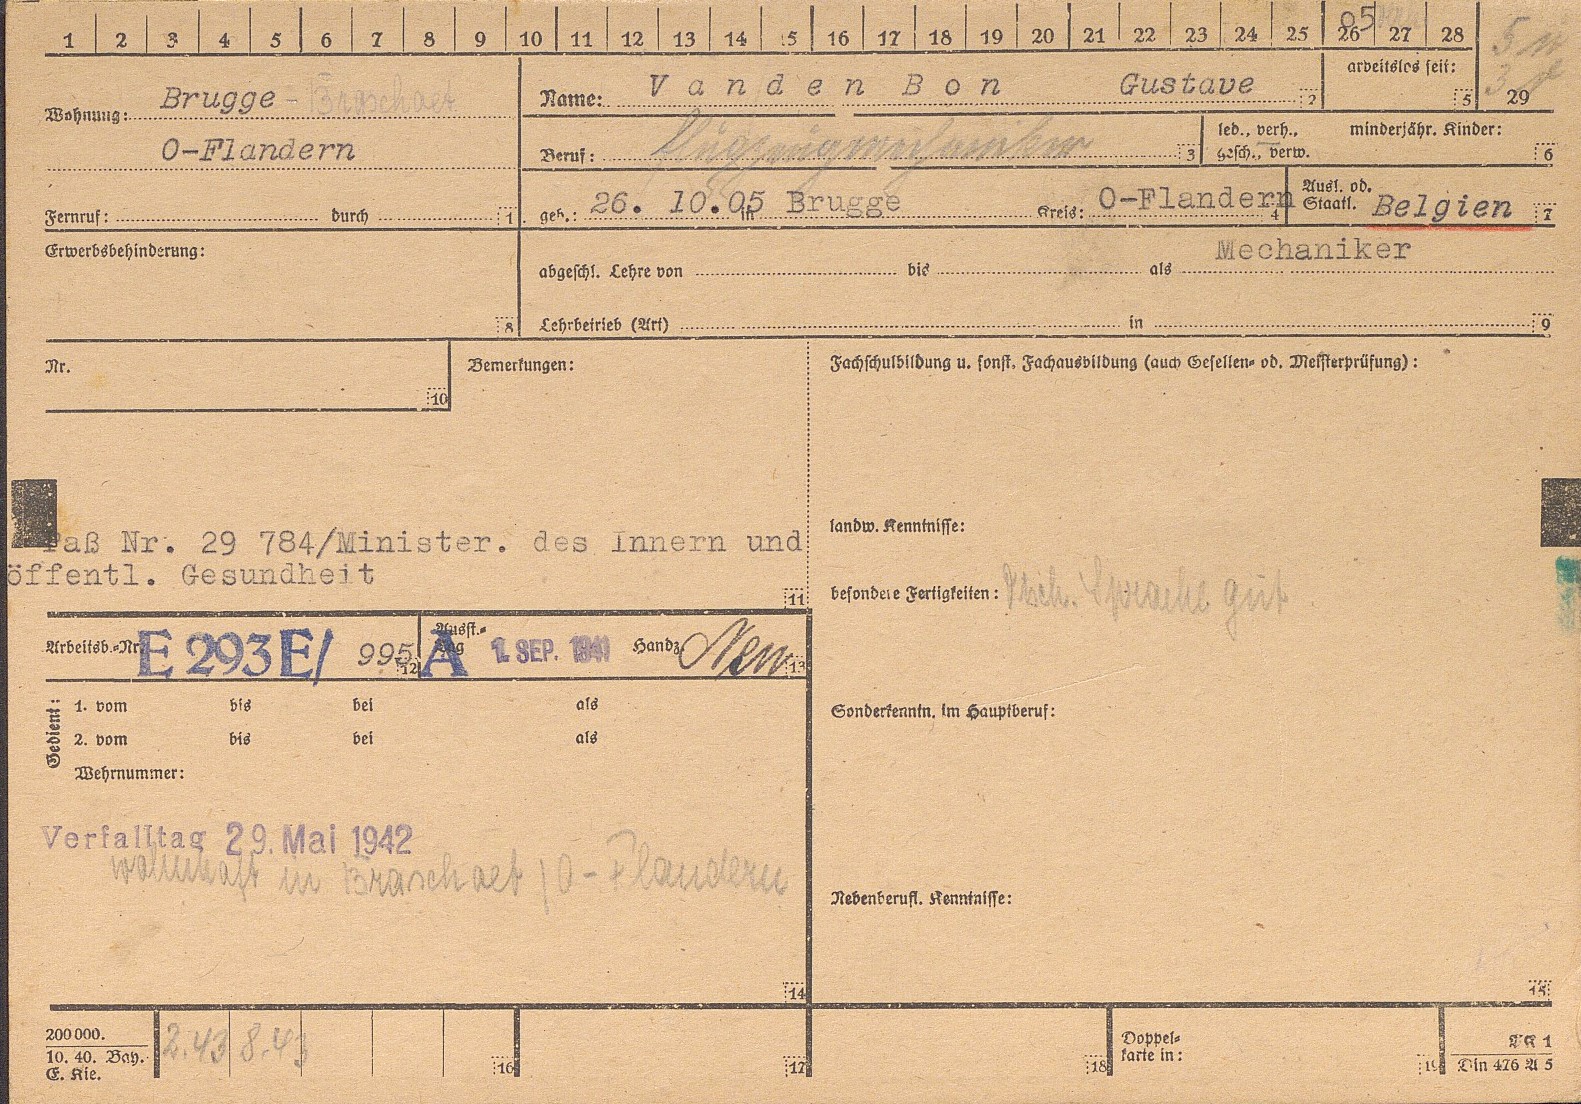 1 2 3 4 5 6 7 8 9 10 11 12 13 14 15 16 17 18 19 20 21 22 23 24 25 26 27 28
05
29
Wohnung: Brugge - Braschaet
O-Flandern
Fernruf: durch 1
Name: Vanden Bon Gustave 2
arbeitslos seit: 5
Beruf: Flugzeugmechaniker 3
led., verh., gesch., verw.
minderjähr. Kinder: 6
geb.: 26. 10.05 in Brugge Kreis: O-Flandern 4
Ausl. od. Staatl. Belgien 7
Erwerbsbehinderung: 8
Mechaniker
abgeschl. Lehre von bis als
Lehrbetrieb (Art) in 9
Nr. 10
Bemerkungen:
Paß Nr. 29 784/Minister. des Innern und
öffentl. Gesundheit
11
Fachschulbildung u. sonst. Fachausbildung (auch Gesellen- od. Meisterprüfung):
landw. Kenntnisse:
besondere Fertigkeiten: Dtsch. Sprache gut
Sonderkenntn. im Hauptberuf:
Nebenberufl. Kenntnisse:
15
Arbeitsb.-Nr. E 293E/ 995 12
A Ausst.-Tag 1. SEP. 1941 Handz. 13
Gedient:
1. vom bis bei als
2. vom bis bei als
Wehrnummer:
Verfalltag 29. Mai 1942
wohnhaft in Braschaet / O-Flandern
14
200000.
10. 40. Bay.
E. Kie.
2.43 8.43
16 17 18
Doppel-
karte in:
19
AK 1
Din 476 A 5